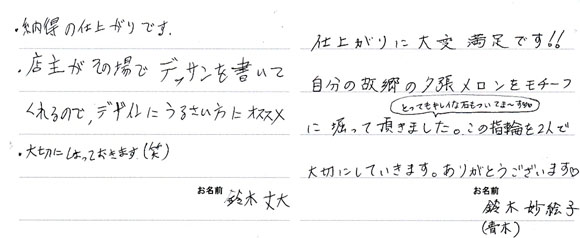 ・納得の仕上がりです。
・店主がその場でデッサンを書いて
くれるので、デザインにうるさい方にオススメ
・大切にしまっておきます(笑)
お名前
鈴木 丈大
仕上がりに大変満足です!!
自分の故郷の夕張メロンをモチーフ
とってもキレイな石もついてま〜す♡
に掘って頂きました。この指輪を2人で
大切にしていきます。ありがとうございます♡
お名前
鈴木 妙絵子
(青木)